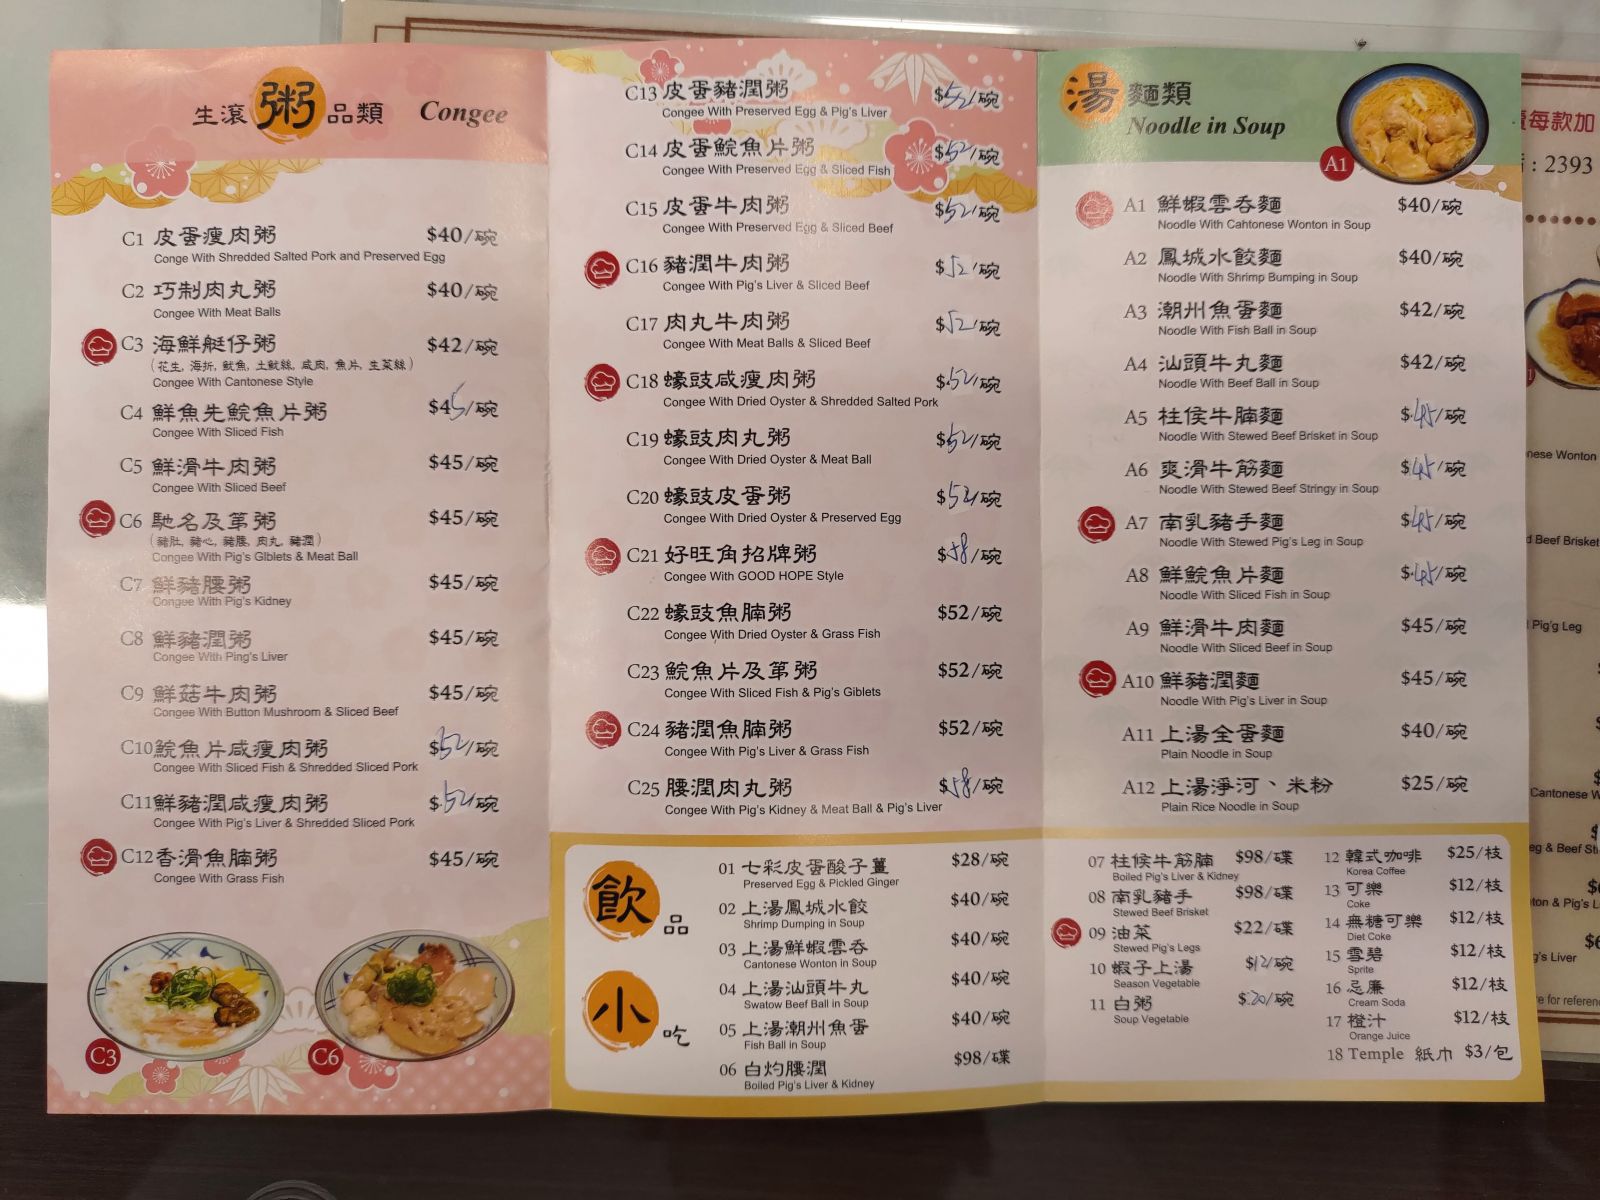 生滾粥品類 Congee
C1 皮蛋瘦肉粥 $40/碗
Conge With Shredded Salted Pork and Preserved Egg
C2 巧制肉丸粥 $40/碗
Congee With Meat Balls
C3 海鮮艇仔粥 $42/碗
(花生, 海折, 魷魚, 土魷絲, 咸肉, 魚片, 生菜絲)
Congee With Cantonese Style
C4 鮮魚先鯇魚片粥 $45/碗
Congee With Sliced Fish
C5 鮮滑牛肉粥 $45/碗
Congee With Sliced Beef
C6 馳名及第粥 $45/碗
(豬肚, 豬心, 豬腰, 肉丸, 豬潤)
Congee With Pig's Giblets & Meat Ball
C7 鮮豬腰粥 $45/碗
Congee With Pig's Kidney
C8 鮮豬潤粥 $45/碗
Congee With Ping's Liver
C9 鮮菇牛肉粥 $45/碗
Congee With Button Mushroom & Sliced Beef
C10 鯇魚片咸瘦肉粥 $52/碗
Congee With Sliced Fish & Shredded Sliced Pork
C11 鮮豬潤咸瘦肉粥 $52/碗
Congee With Pig's Liver & Shredded Sliced Pork
C12 香滑魚腩粥 $45/碗
Congee With Grass Fish
C3
C6
C13 皮蛋豬潤粥 $52/碗
Congee With Preserved Egg & Pig's Liver
C14 皮蛋鯇魚片粥 $52/碗
Congee With Preserved Egg & Sliced Fish
C15 皮蛋牛肉粥 $52/碗
Congee With Preserved Egg & Sliced Beef
C16 豬潤牛肉粥 $52/碗
Congee With Pig's Liver & Sliced Beef
C17 肉丸牛肉粥 $52/碗
Congee With Meat Balls & Sliced Beef
C18 蠔豉咸瘦肉粥 $52/碗
Congee With Dried Oyster & Shredded Salted Pork
C19 蠔豉肉丸粥 $52/碗
Congee With Dried Oyster & Meat Ball
C20 蠔豉皮蛋粥 $52/碗
Congee With Dried Oyster & Preserved Egg
C21 好旺角招牌粥 $58/碗
Congee With GOOD HOPE Style
C22 蠔豉魚腩粥 $52/碗
Congee With Dried Oyster & Grass Fish
C23 鯇魚片及第粥 $52/碗
Congee With Sliced Fish & Pig's Giblets
C24 豬潤魚腩粥 $52/碗
Congee With Pig's Liver & Grass Fish
C25 腰潤肉丸粥 $58/碗
Congee With Pig's Kidney & Meat Ball & Pig's Liver
湯麵類
Noodle in Soup
A1
A1 鮮蝦雲吞麵 $40/碗
Noodle With Cahtonese Wonton in Soup
A2 鳳城水餃麵 $40/碗
Noodle With Shrimp Bumping in Soup
A3 潮州魚蛋麵 $42/碗
Noodle With Fish Ball in Soup
A4 汕頭牛丸麵 $42/碗
Noodle With Beef Ball in Soup
A5 柱侯牛腩麵 $45/碗
Noodle With Stewed Beef Brisket in Soup
A6 爽滑牛筋麵 $45/碗
Noodle With Stewed Beef Stringy in Soup
A7 南乳豬手麵 $45/碗
Noodle With Stewed Pig's Leg in Soup
A8 鮮鯇魚片麵 $45/碗
Noodle With Sliced Fish in Soup
A9 鮮滑牛肉麵 $45/碗
Noodle With Sliced Beef in Soup
A10 鮮豬潤麵 $45/碗
Noodle With Pig's Liver in Soup
A11 上湯全蛋麵 $40/碗
Plain Noodle in Soup
A12 上湯淨河、米粉 $25/碗
Plain Rice Noodle in Soup
飲品
小吃
01 七彩皮蛋酸子薑 $28/碗
Preserved Egg & Pickled Ginger
02 上湯鳳城水餃 $40/碗
Shrimp Dumping in Soup
03 上湯鮮蝦雲吞 $40/碗
Cantonese Wonton in Soup
04 上湯汕頭牛丸 $40/碗
Swatow Beef Ball in Soup
05 上湯潮州魚蛋 $40/碗
Fish Ball in Soup
06 白灼腰潤 $98/碟
Boiled Pig's Liver & Kidney
07 柱候牛筋腩 $98/碟
Boiled Pig's Liver & Kidney
08 南乳豬手 $98/碟
Stewed Beef Brisket
09 油菜 $22/碟
Stewed Pig's Legs
10 蝦子上湯 $12/碗
Season Vegetable
11 白粥 $20/碗
Soup Vegetable
12 韓式咖啡 $25/枝
Korea Coffee
13 可樂 $12/枝
Coke
14 無糖可樂 $12/枝
Diet Coke
15 雪碧 $12/枝
Sprite
16 忌廉 $12/枝
Cream Soda
17 橙汁 $12/枝
Orange Juice
18 Temple 紙巾 $3/包
每款加
: 2393
nese Wonton
d Beef Brisket
Pig'g Leg
Cantonese W
eg & Beef Sti
ton & Pig's L
g's Liver
e for referenc